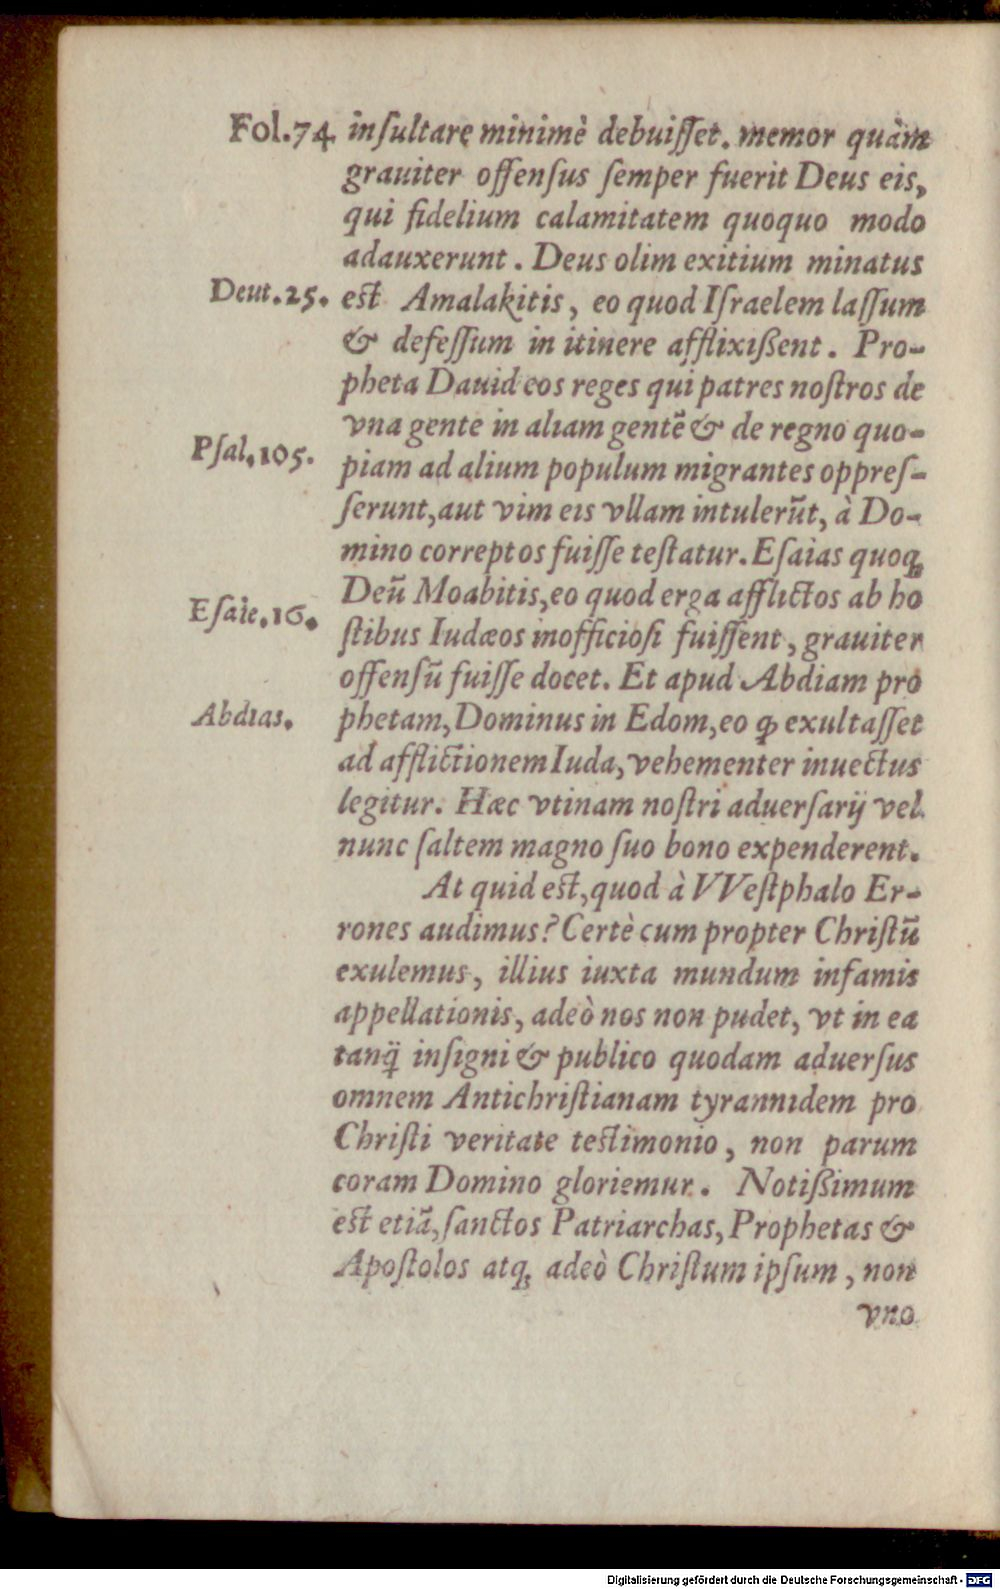 Fol.74 inſultare minimè debuiſſet. memor quàm
grauiter offenſus ſemper fuerit Deus eis,
qui fidelium calamitatem quoquo modo
adauxerunt. Deus olim exitium minatus
Deut.25. eſt Amalakitis, eo quod Iſraelem laſſum
& defeſſum in itinere afflixißent. Pro-
pheta Dauid eos reges qui patres noſtros de
vna gente in aliam gentē & de regno quo-
Pſal.105. piam ad alium populum migrantes oppreſ-
ſerunt, aut vim eis vllam intulerūt, à Do-
mino correptos fuiſſe teſtatur. Eſaias quoq;
Deū Moabitis, eo quod erga afflictos ab ho
Eſaie.16. ſtibus Iudæos inofficioſi fuiſſent, grauiter
offenſū fuiſſe docet. Et apud Abdiam pro
Abdias. phetam, Dominus in Edom, eo ꝙ exultaſſet
ad afflictionem Iuda, vehementer inuectus
legitur. Hæc vtinam noſtri aduerſarij vel
nunc ſaltem magno ſuo bono expenderent.
At quid eſt, quod à VVeſtphalo Er-
rones audimus? Certè cum propter Chriſtū
exulemus, illius iuxta mundum infamis
appellationis, adeò nos non pudet, vt in ea
tanq̄ inſigni & publico quodam aduerſus
omnem Antichriſtianam tyrannidem pro
Chriſti veritate teſtimonio, non parum
coram Domino gloriemur. Notißimum
eſt etiā, ſanctos Patriarchas, Prophetas &
Apoſtolos atq; adeò Chriſtum ipſum, non
vno
Digitalisierung gefördert durch die Deutsche Forschungsgemeinschaft - DFG